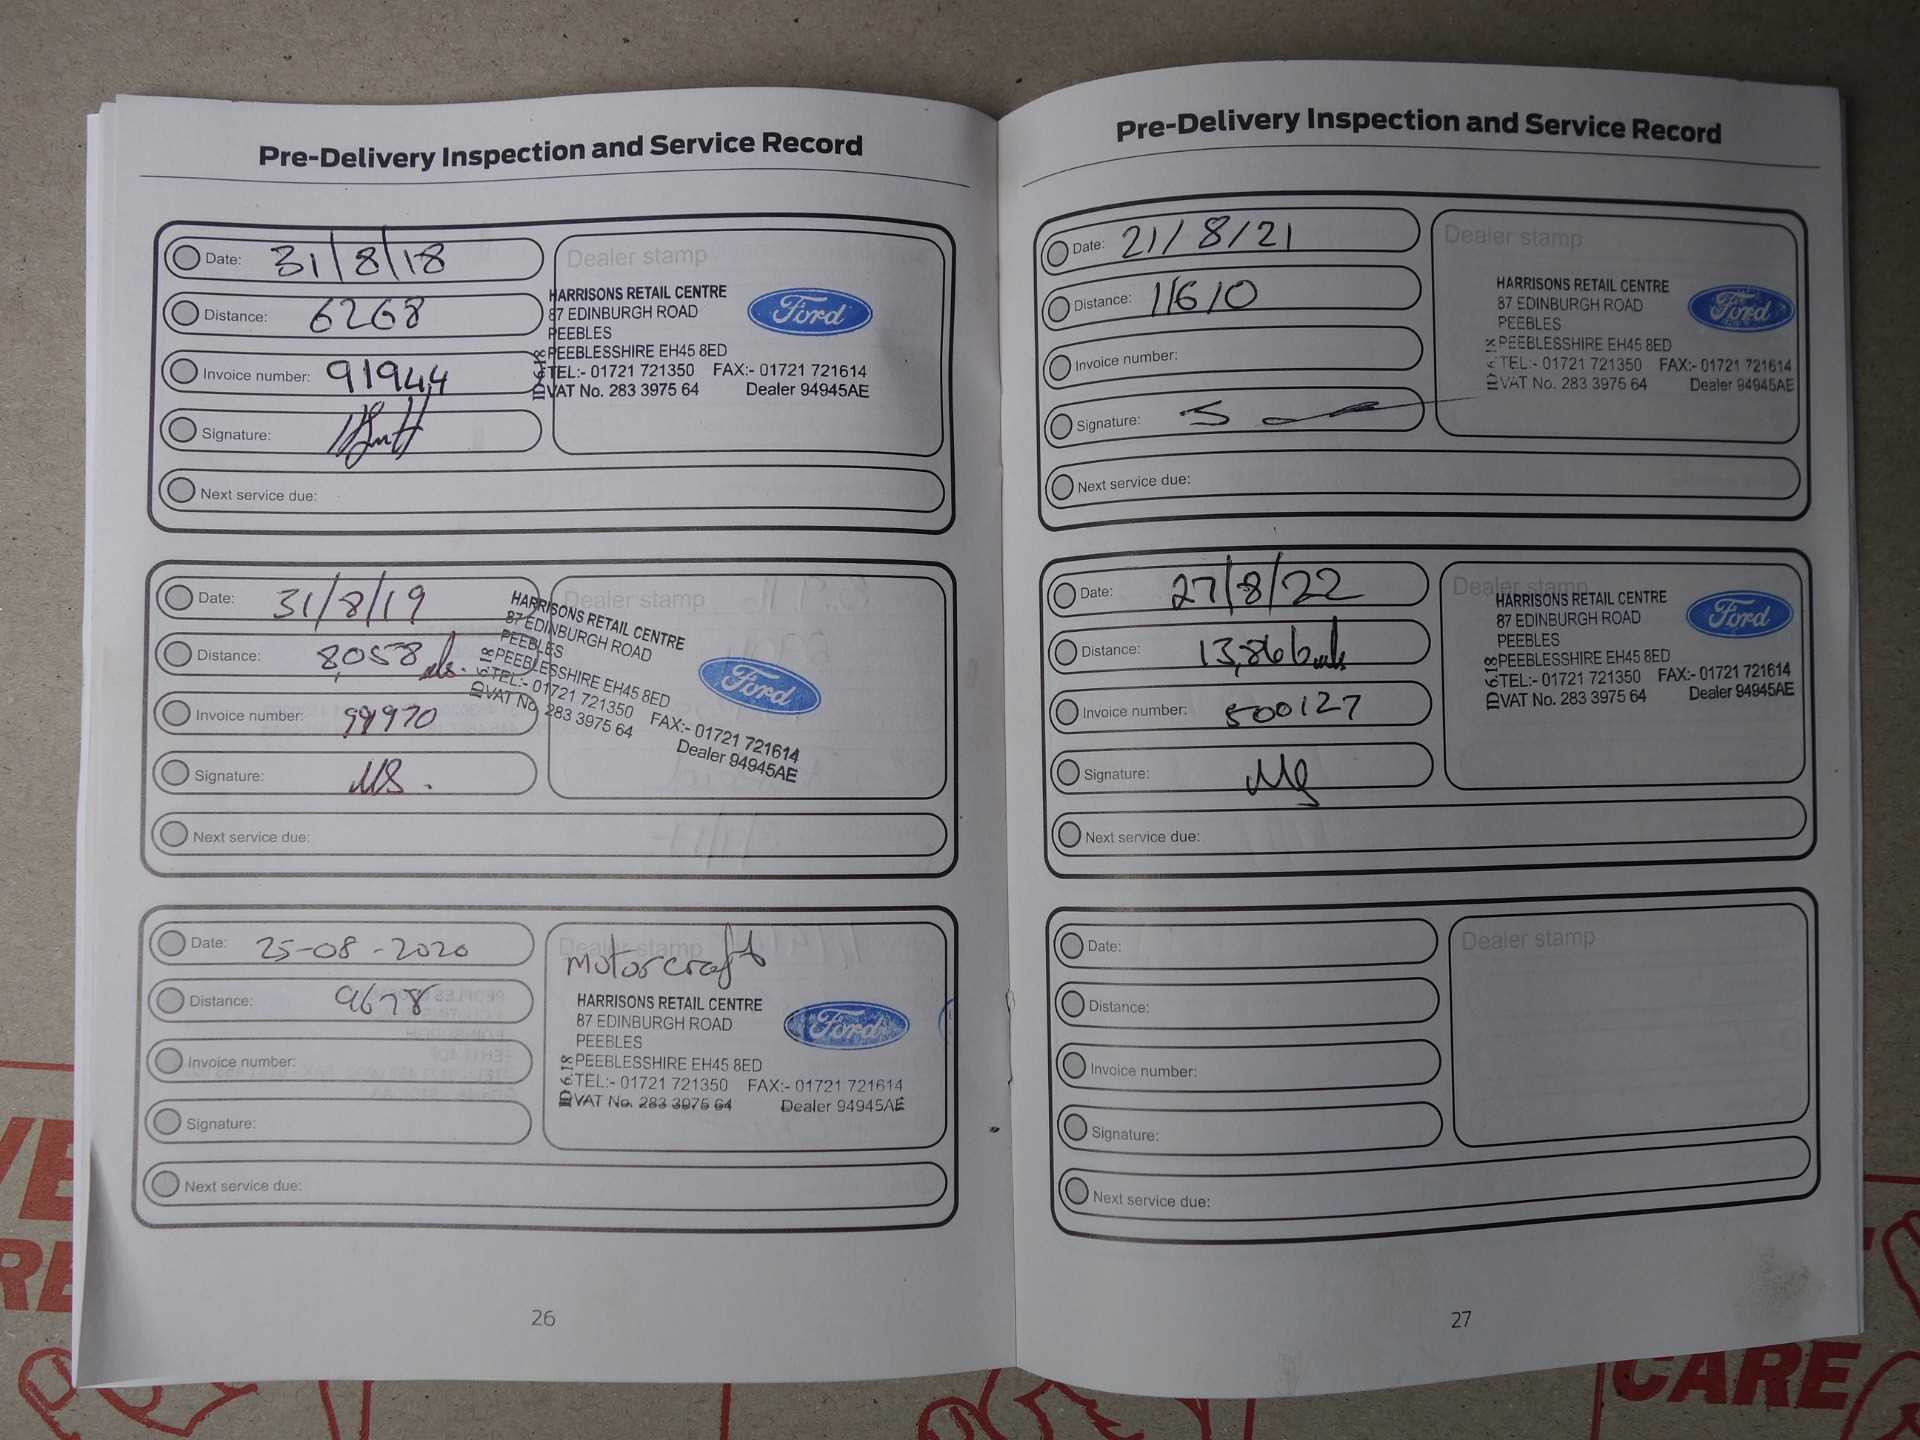 Pre-Delivery Inspection and Service Record
Date: 31/8/18
Distance: 6268
Invoice number: 91944
Signature:
Next service due:
Dealer stamp
HARRISONS RETAIL CENTRE
87 EDINBURGH ROAD
PEEBLES
PEEBLESSHIRE EH45 8ED
TEL:- 01721 721350 FAX:- 01721 721614
VAT No. 283 3975 64 Dealer 94945AE
ID 6.18
Ford
Date: 31/8/19
Distance: 8,058 mls.
Invoice number: 99970
Signature: MS.
Next service due:
Dealer stamp
HARRISONS RETAIL CENTRE
87 EDINBURGH ROAD
PEEBLES
PEEBLESSHIRE EH45 8ED
TEL:- 01721 721350 FAX:- 01721 721614
VAT No. 283 3975 64 Dealer 94945AE
ID 6.18
Ford
Date: 25-08-2020
Distance: 9678
Invoice number:
Signature:
Next service due:
Dealer stamp
Motorcraft
HARRISONS RETAIL CENTRE
87 EDINBURGH ROAD
PEEBLES
PEEBLESSHIRE EH45 8ED
TEL:- 01721 721350 FAX:- 01721 721614
VAT No. 283 3975 64 Dealer 94945AE
ID 6.18
Ford
26
Pre-Delivery Inspection and Service Record
Date: 21/8/21
Distance: 11610
Invoice number:
Signature:
Next service due:
Dealer stamp
HARRISONS RETAIL CENTRE
87 EDINBURGH ROAD
PEEBLES
PEEBLESSHIRE EH45 8ED
TEL:- 01721 721350 FAX:- 01721 721614
VAT No. 283 3975 64 Dealer 94945AE
ID 6.18
Ford
Date: 27/8/22
Distance: 13,866 mls
Invoice number: 500127
Signature: MS
Next service due:
Dealer stamp
HARRISONS RETAIL CENTRE
87 EDINBURGH ROAD
PEEBLES
PEEBLESSHIRE EH45 8ED
TEL:- 01721 721350 FAX:- 01721 721614
VAT No. 283 3975 64 Dealer 94945AE
ID 6.18
Ford
Date:
Distance:
Invoice number:
Signature:
Next service due:
Dealer stamp
27
CARE